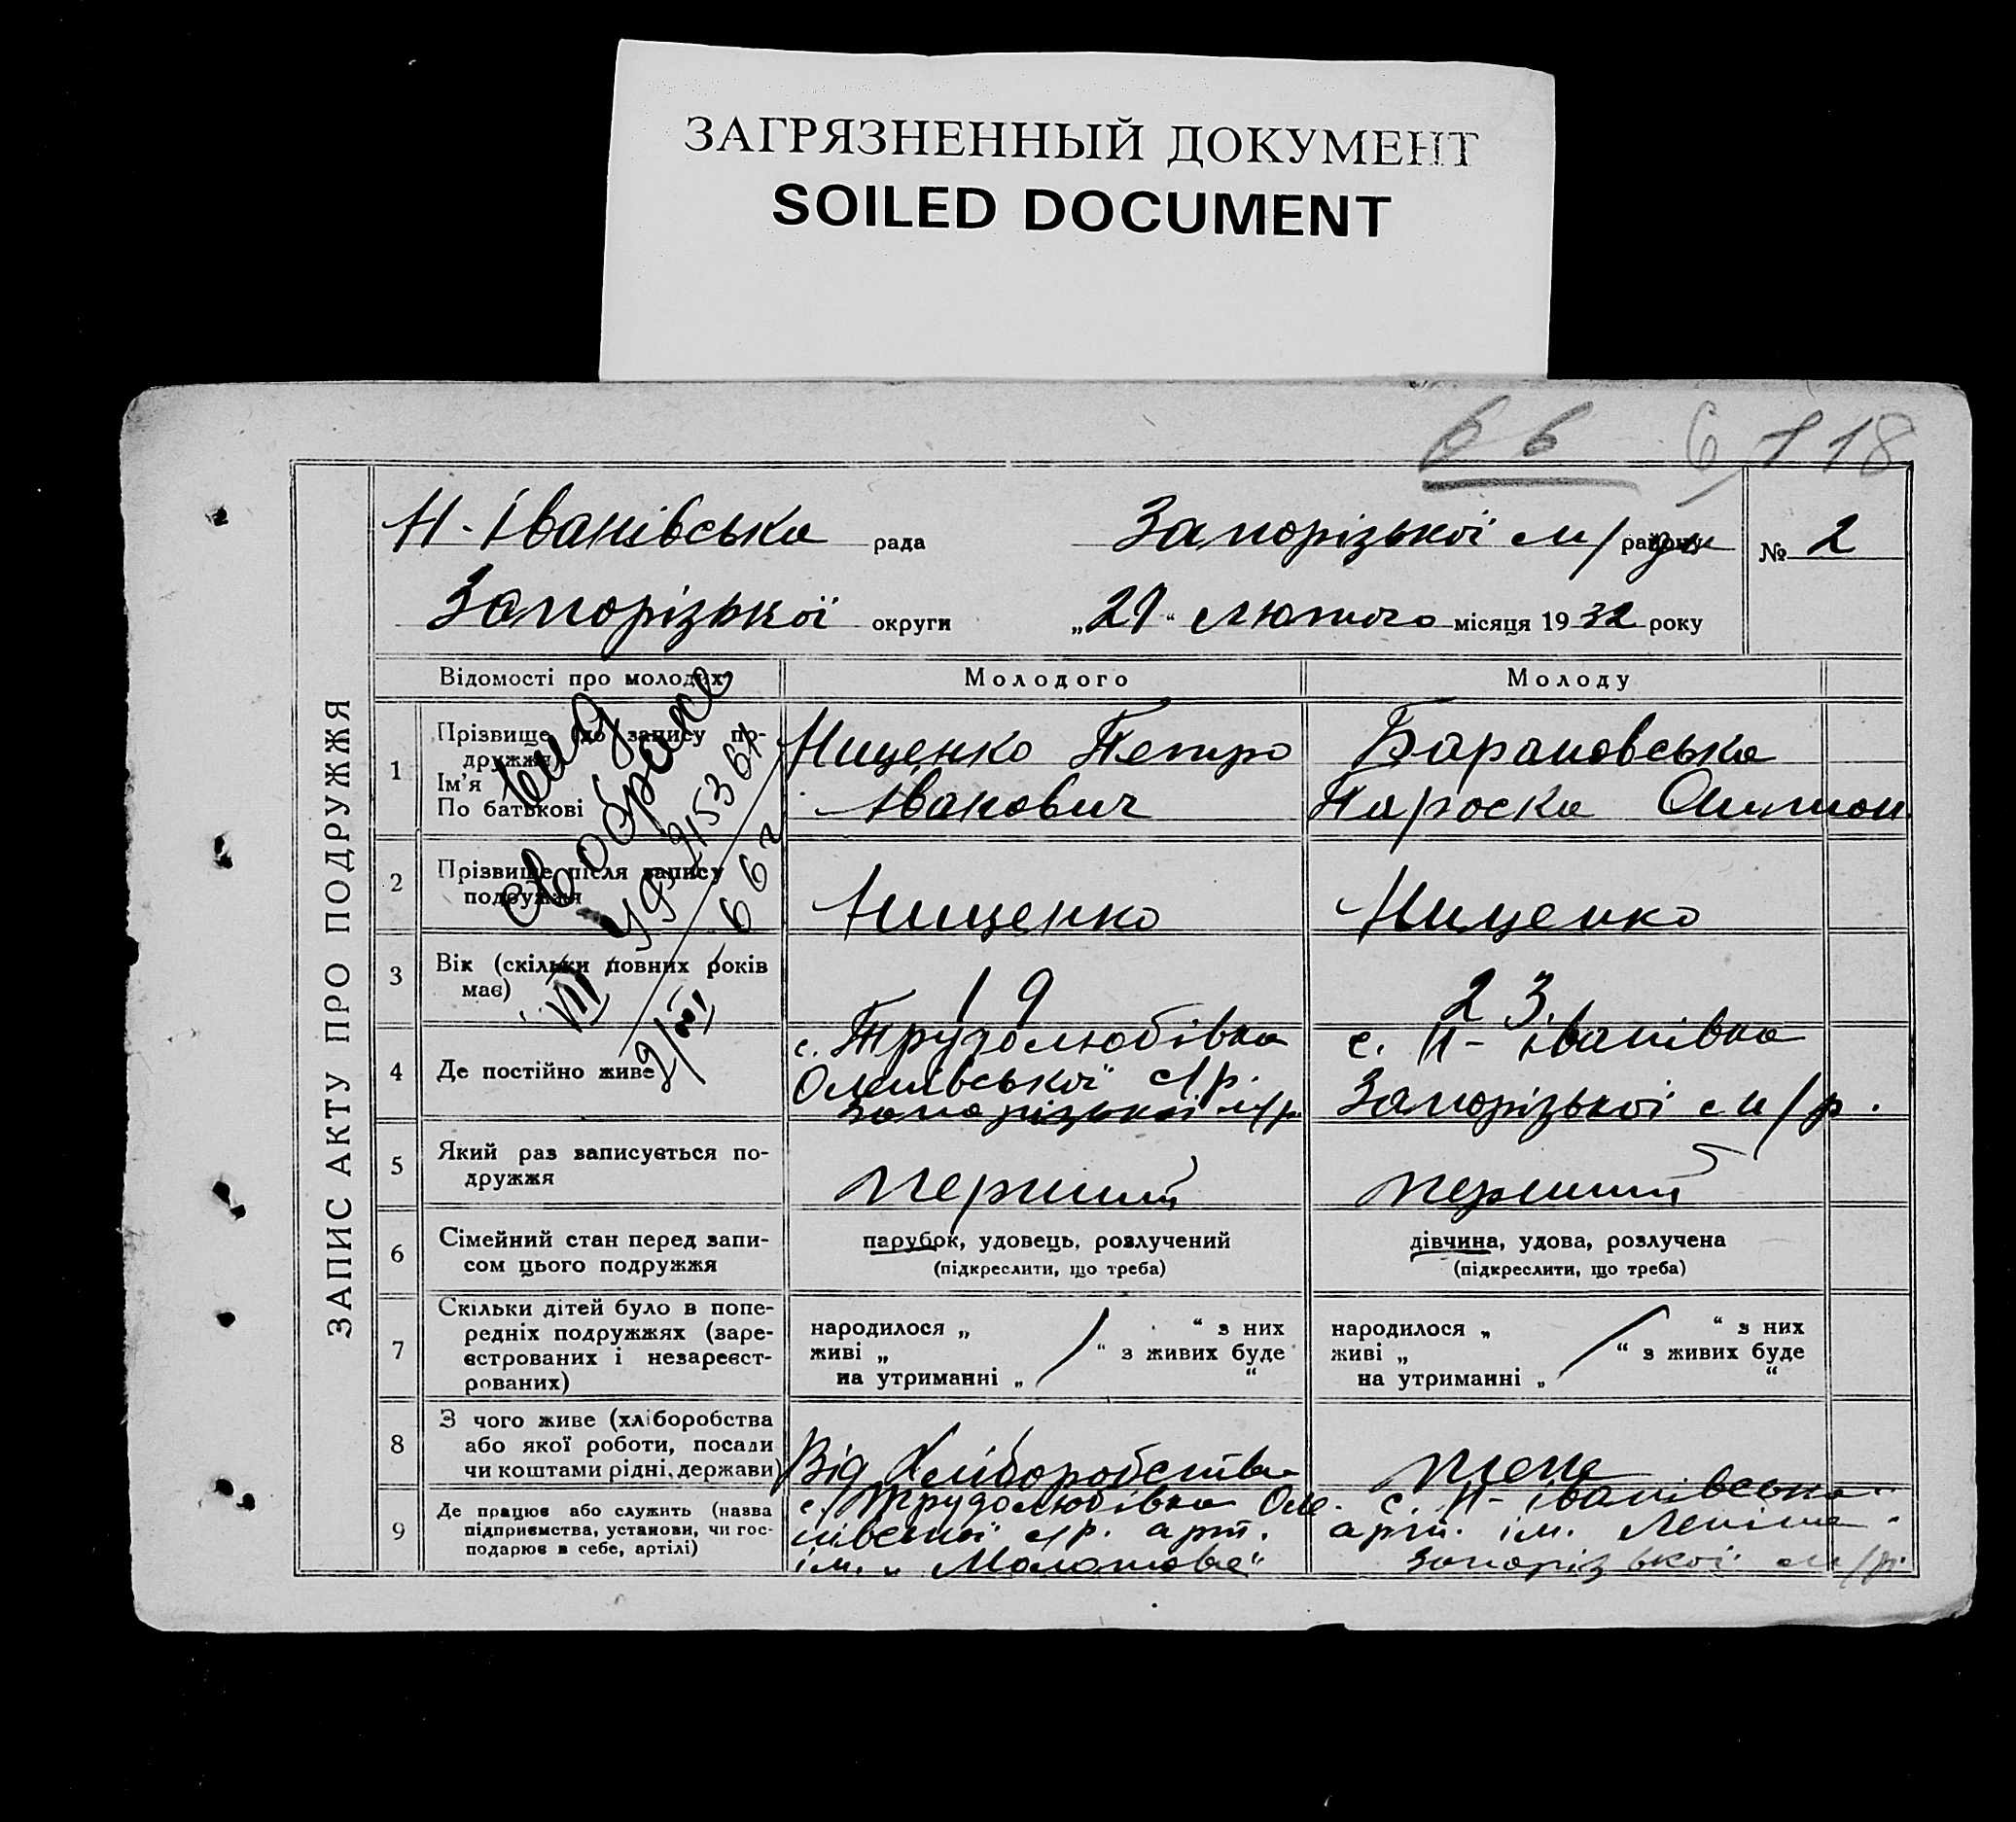 ЗАГРЯЗНЕННЫЙ ДОКУМЕНТ
SOILED DOCUMENT
118
ЗАПИС АКТУ ПРО ПОДРУЖЖЯ
Н-Іванівська рада Запорізької м/ района № 2
Запорізької округи „21“ лютого місяця 1932 року
Відомості про молодих Молодого Молоду
1 Прізвище до запису по-
дружжя
Ім'я
По батькові
Нищенко Петро
Іванович
Барановська
Пароска
2 Прізвище після запису
подружжя
Нищенко Нищенко
Вид
св о браке
УЯ 215361
3 Вік (скільки повних років
має)
19 23.
4 Де постійно живе
с. Трудолюбівка
с/р.
Запорізької м/р
с. Н-Іванівка
Запорізької м/р.
5 Який раз записується по-
дружжя
перший перший
6 Сімейний стан перед запи-
сом цього подружжя
парубок, удовець, розлучений
(підкреслити, що треба)
дівчина, удова, розлучена
(підкреслити, що треба)
7 Скільки дітей було в попе-
редніх подружжях (заре-
єстрованих і незареєст-
рованих)
народилося „ “ з них
живі „ “ з живих буде
на утриманні „ “
народилося „ “ з них
живі „ “ з живих буде
на утриманні „ “
8 З чого живе (хліборобства
або якої роботи, посади
чи коштами рідні, держави)
Від хліборобства теж
9 Де працює або служить (назва
підприємства, установи, чи гос-
подарює в себе, артілі)
с. Трудолюбівка
с/р. арт.
ім. „Молотова“
с. Н-Іванівська
арт. ім. Леніна
Запорізької м/р.